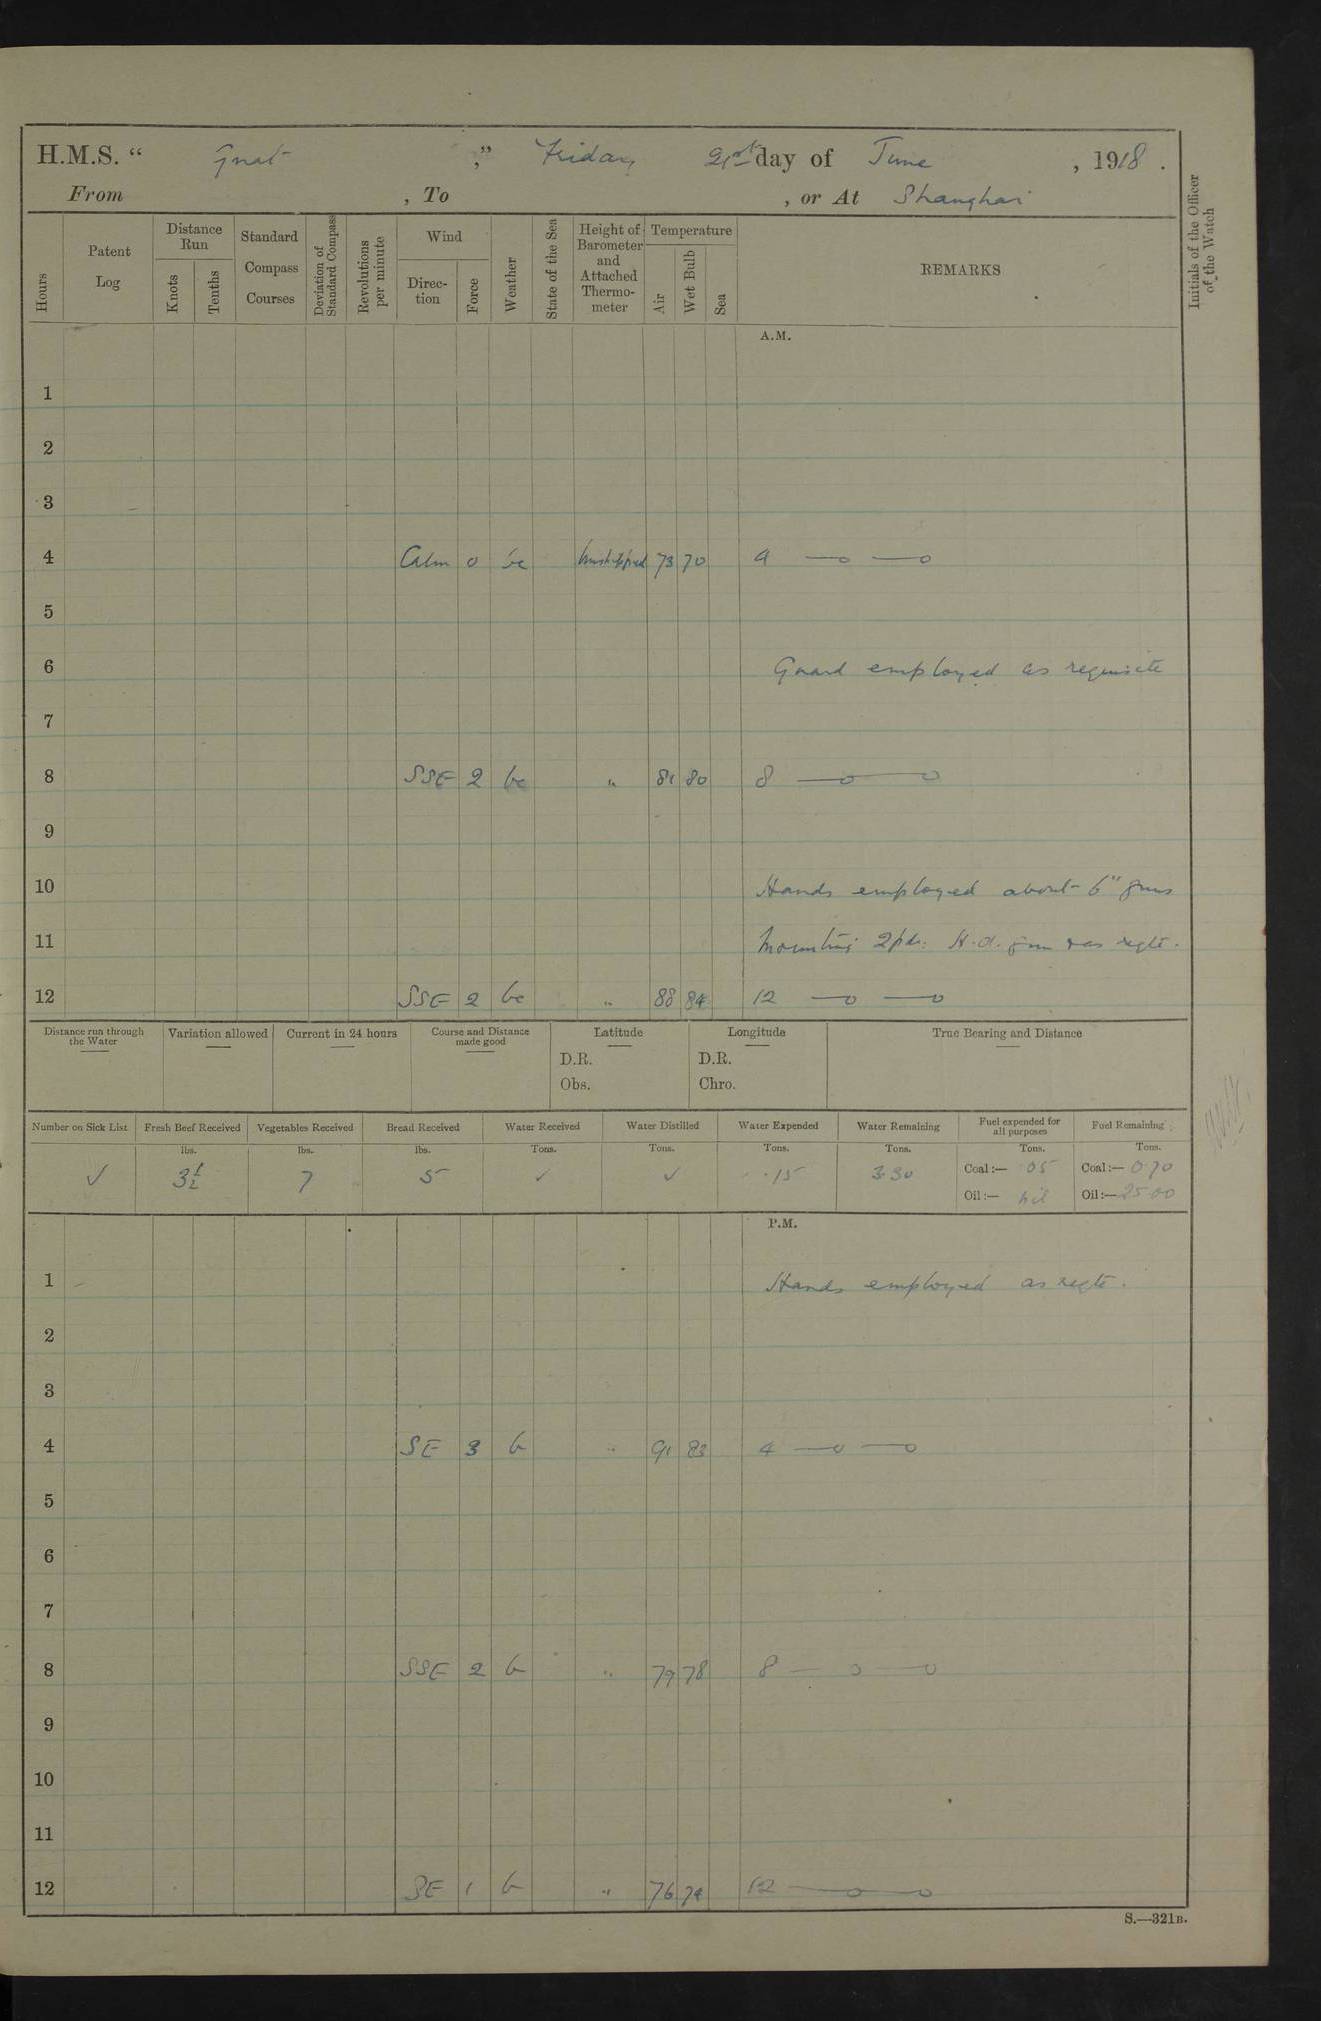 H.M.S. “ Gnat ,” Friday 21st day of June , 1918 .
From , To , or At Shanghai
Hours
Patent Log
Distance Run
Knots
Tenths
Standard Compass Courses
Deviation of Standard Compass
Revolutions per minute
Wind
Direction
Force
Weather
State of the Sea
Height of Barometer and Attached Thermometer
Temperature
Air
Wet Bulb
Sea
REMARKS
Initials of the Officer of the Watch
A.M.
1
2
3
4 Calm 0 bc Unshipped 73 70 4 —o —o
5
6 Guard employed as requisite
7
8 SSE 2 bc " 81 80 8 —o —o
9
10 Hands employed about 6" guns
11 mounting 2pdr. H.A. gun & as reqte.
12 SSE 2 bc " 88 84 12 —o —o
Distance run through the Water
Variation allowed
Current in 24 hours
Course and Distance made good
Latitude
D.R.
Obs.
Longitude
D.R.
Chro.
True Bearing and Distance
Number on Sick List Fresh Beef Received Vegetables Received Bread Received Water Received Water Distilled Water Expended Water Remaining Fuel expended for all purposes Fuel Remaining
lbs. lbs. lbs. Tons. Tons. Tons. Tons. Tons. Tons.
✓ 3½ 7 5 ✓ ✓ ·15 3·30 Coal :— ·05 Coal :— 0·70
Oil :— nil Oil :— 25·00
P.M.
1 Hands employed as reqte.
2
3
4 SE 3 b " 91 83 4 —o —o
5
6
7
8 SSE 2 b " 79 78 8 —o —o
9
10
11
12 SE 1 b " 76 74 12 —o —o
S.—321B.